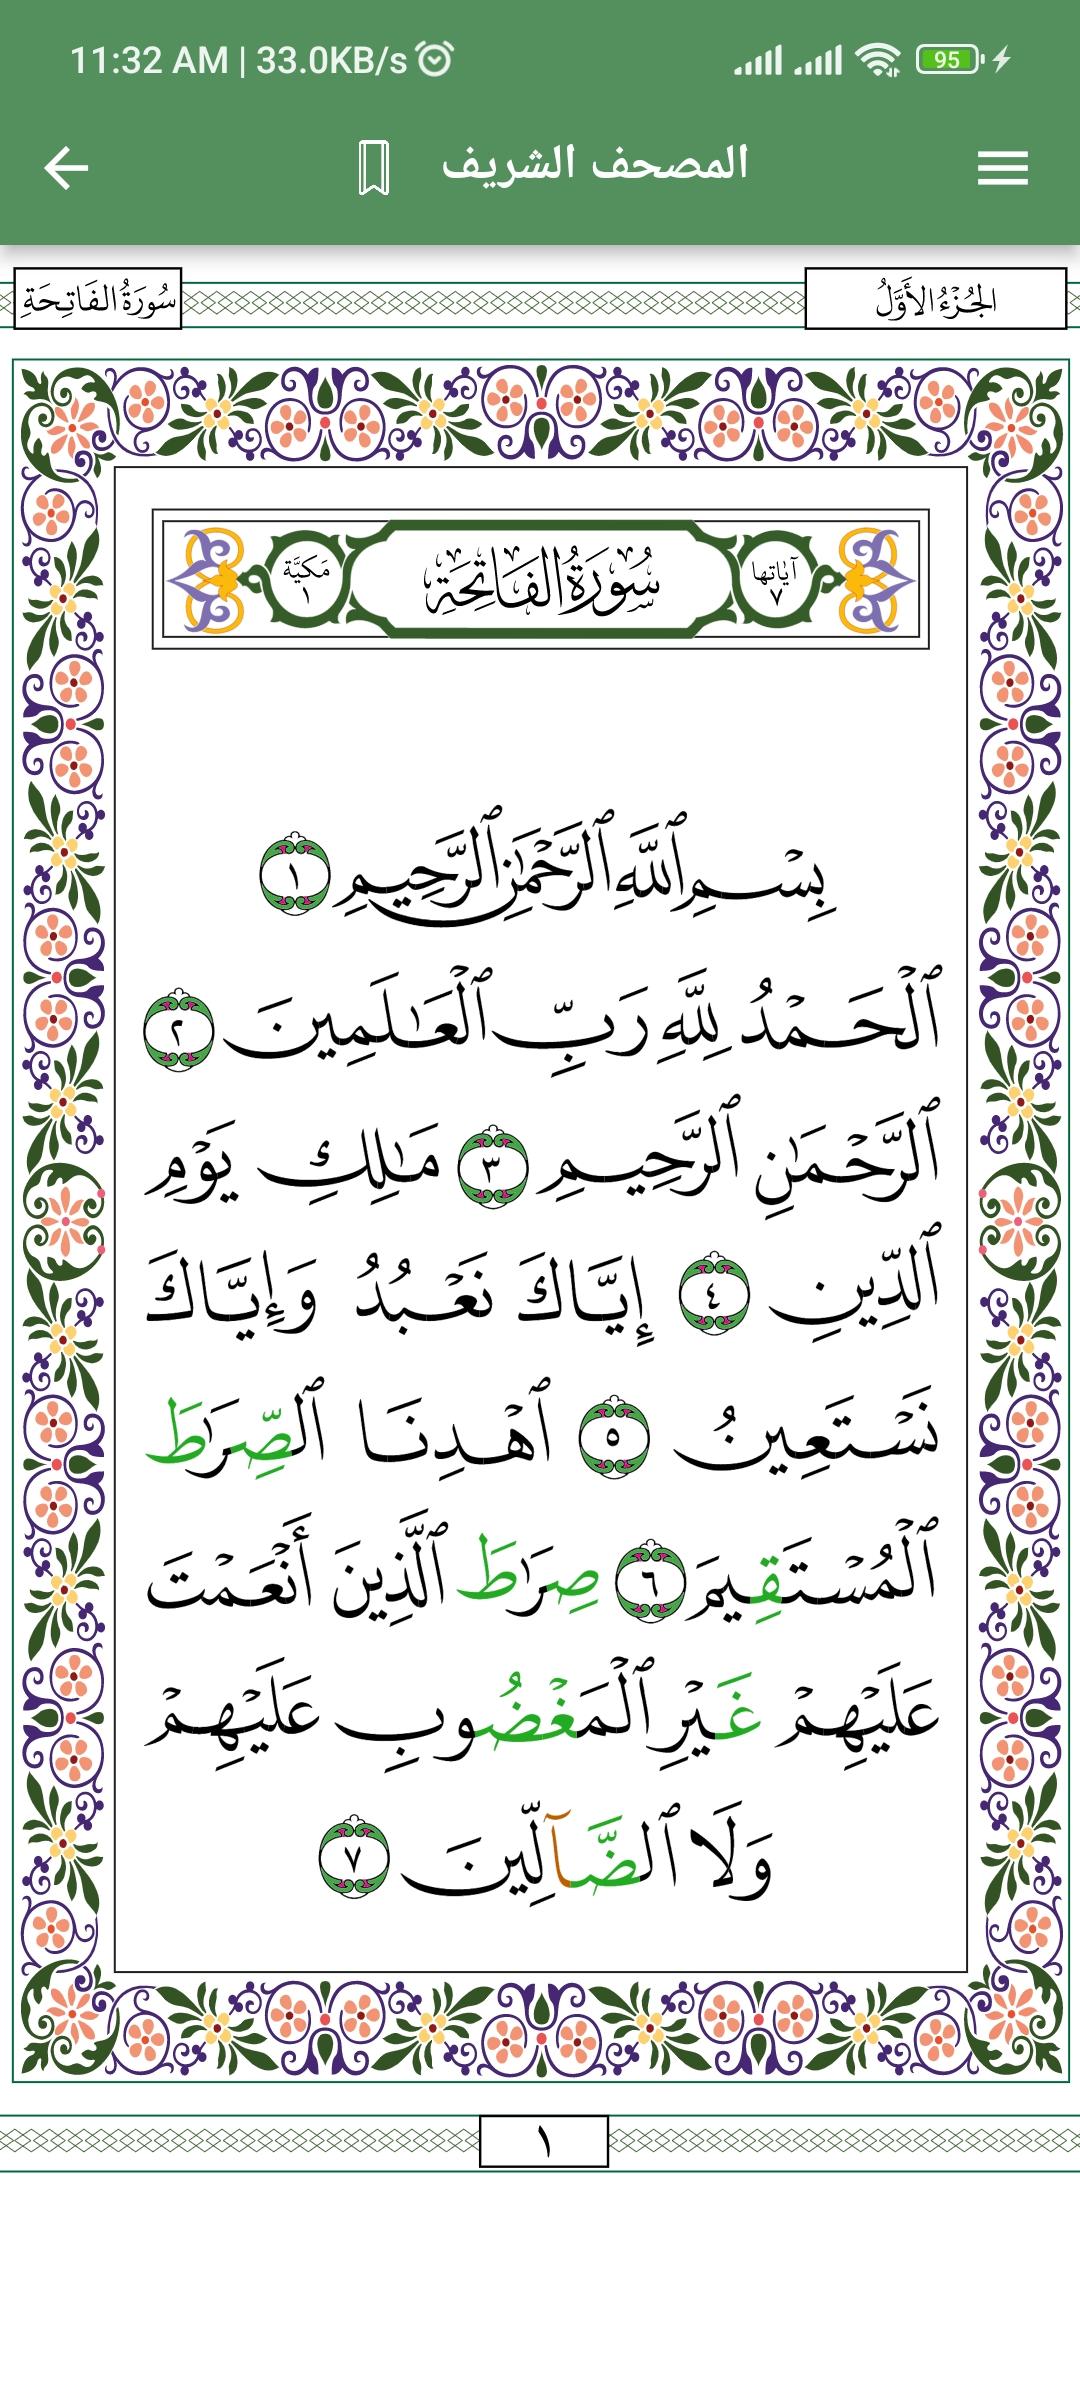 11:32 AM | 33.0KB/s
95
المصحف الشريف
الجُزْءُ الأَوَّلُ
سُورَةُ الفَاتِحَةِ
آيَاتُها ٧
سُورَةُ الفَاتِحَةِ
مَكيَّة ١
بِسْمِ ٱللَّهِ ٱلرَّحْمَٰنِ ٱلرَّحِيمِ ١
ٱلْحَمْدُ لِلَّهِ رَبِّ ٱلْعَٰلَمِينَ ٢
ٱلرَّحْمَٰنِ ٱلرَّحِيمِ ٣ مَٰلِكِ يَوْمِ
ٱلدِّينِ ٤ إِيَّاكَ نَعْبُدُ وَإِيَّاكَ
نَسْتَعِينُ ٥ ٱهْدِنَا ٱلصِّرَٰطَ
ٱلْمُسْتَقِيمَ ٦ صِرَٰطَ ٱلَّذِينَ أَنْعَمْتَ
عَلَيْهِمْ غَيْرِ ٱلْمَغْضُوبِ عَلَيْهِمْ
وَلَا ٱلضَّآلِّينَ ٧
١